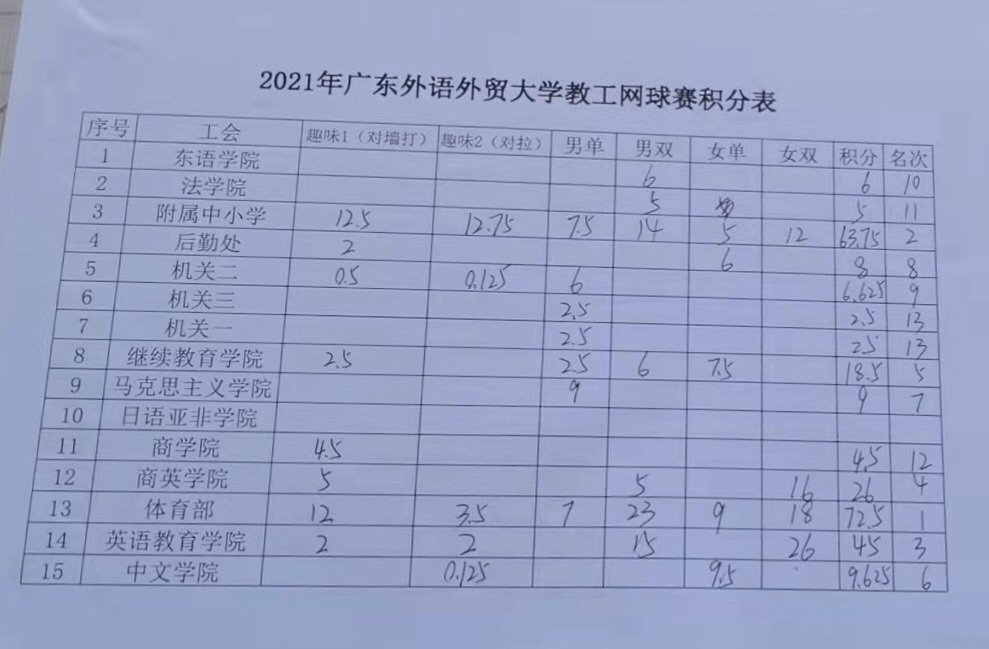 2021年广东外语外贸大学教工网球赛积分表
序号 工会 趣味1（对墙打） 趣味2（对拉） 男单 男双 女单 女双 积分 名次
1 东语学院 6 6 10
2 法学院 5 5 11
3 附属中小学 12.5 12.75 7.5 14 5 12 63.75 2
4 后勤处 2 6 8 8
5 机关二 0.5 0.125 6 6.625 9
6 机关三 2.5 2.5 13
7 机关一 2.5 2.5 13
8 继续教育学院 2.5 2.5 6 7.5 18.5 5
9 马克思主义学院 9 9 7
10 日语亚非学院
11 商学院 4.5 4.5 12
12 商英学院 5 5 16 26 4
13 体育部 12 3.5 7 23 9 18 72.5 1
14 英语教育学院 2 2 15 26 45 3
15 中文学院 0.125 9.5 9.625 6